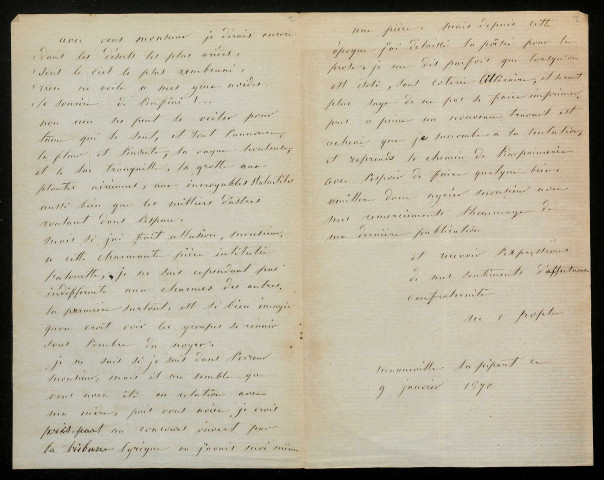 avec vous monsieur je dirais encore
dans les déserts les plus arides
sous le ciel le plus rembruni,
rien ne voile a mes yeux avides
le sourire de l'infini !...
non rien ne peut le voiler pour
l'âme qui le sent, et tout l'annonce,
la fleur et l'insecte, la vague houleuse,
et le lac tranquille, la grotte aux
plantes aériennes, aux incroyables stalactites
aussi bien que les milliers d'astres
roulant dans l'espace.
mais si j'ai fait allusion, monsieur,
a cette charmante pièce intitulée
, je ne suis cependant pas
indifférente aux charmes des autres.
la première surtout est si bien imagée
qu'on croit voir les groupes se réunir
sous l'ombre du noyer.
je ne sais si je suis dans l'erreur
monsieur, mais il me semble que
vous avez été en relation avec
ma mère, puis vous aviez, je crois
pris part au concours ouvert par
la tribune lyrique ou j'avais aussi même
une pièce. mais depuis cette
époque j'ai délaissé la poésie pour la
prose. je me dis parfois que lorsqu'on
est isolé, sans coterie littéraire, il serait
plus sage de ne pas se faire imprimer,
puis a peine un nouveau travail est
achevé que je succombe a la tentation,
et reprends le chemin de l'imprimerie
avec l'espoir de faire quelque bien.
veuillez donc agréer monsieur avec
mes remerciments l'hommage de
ma dernière publication
et recevoir l'expression
de mes sentiments d'affectueuse
confraternité
au pipart ce
9 janvier 1870